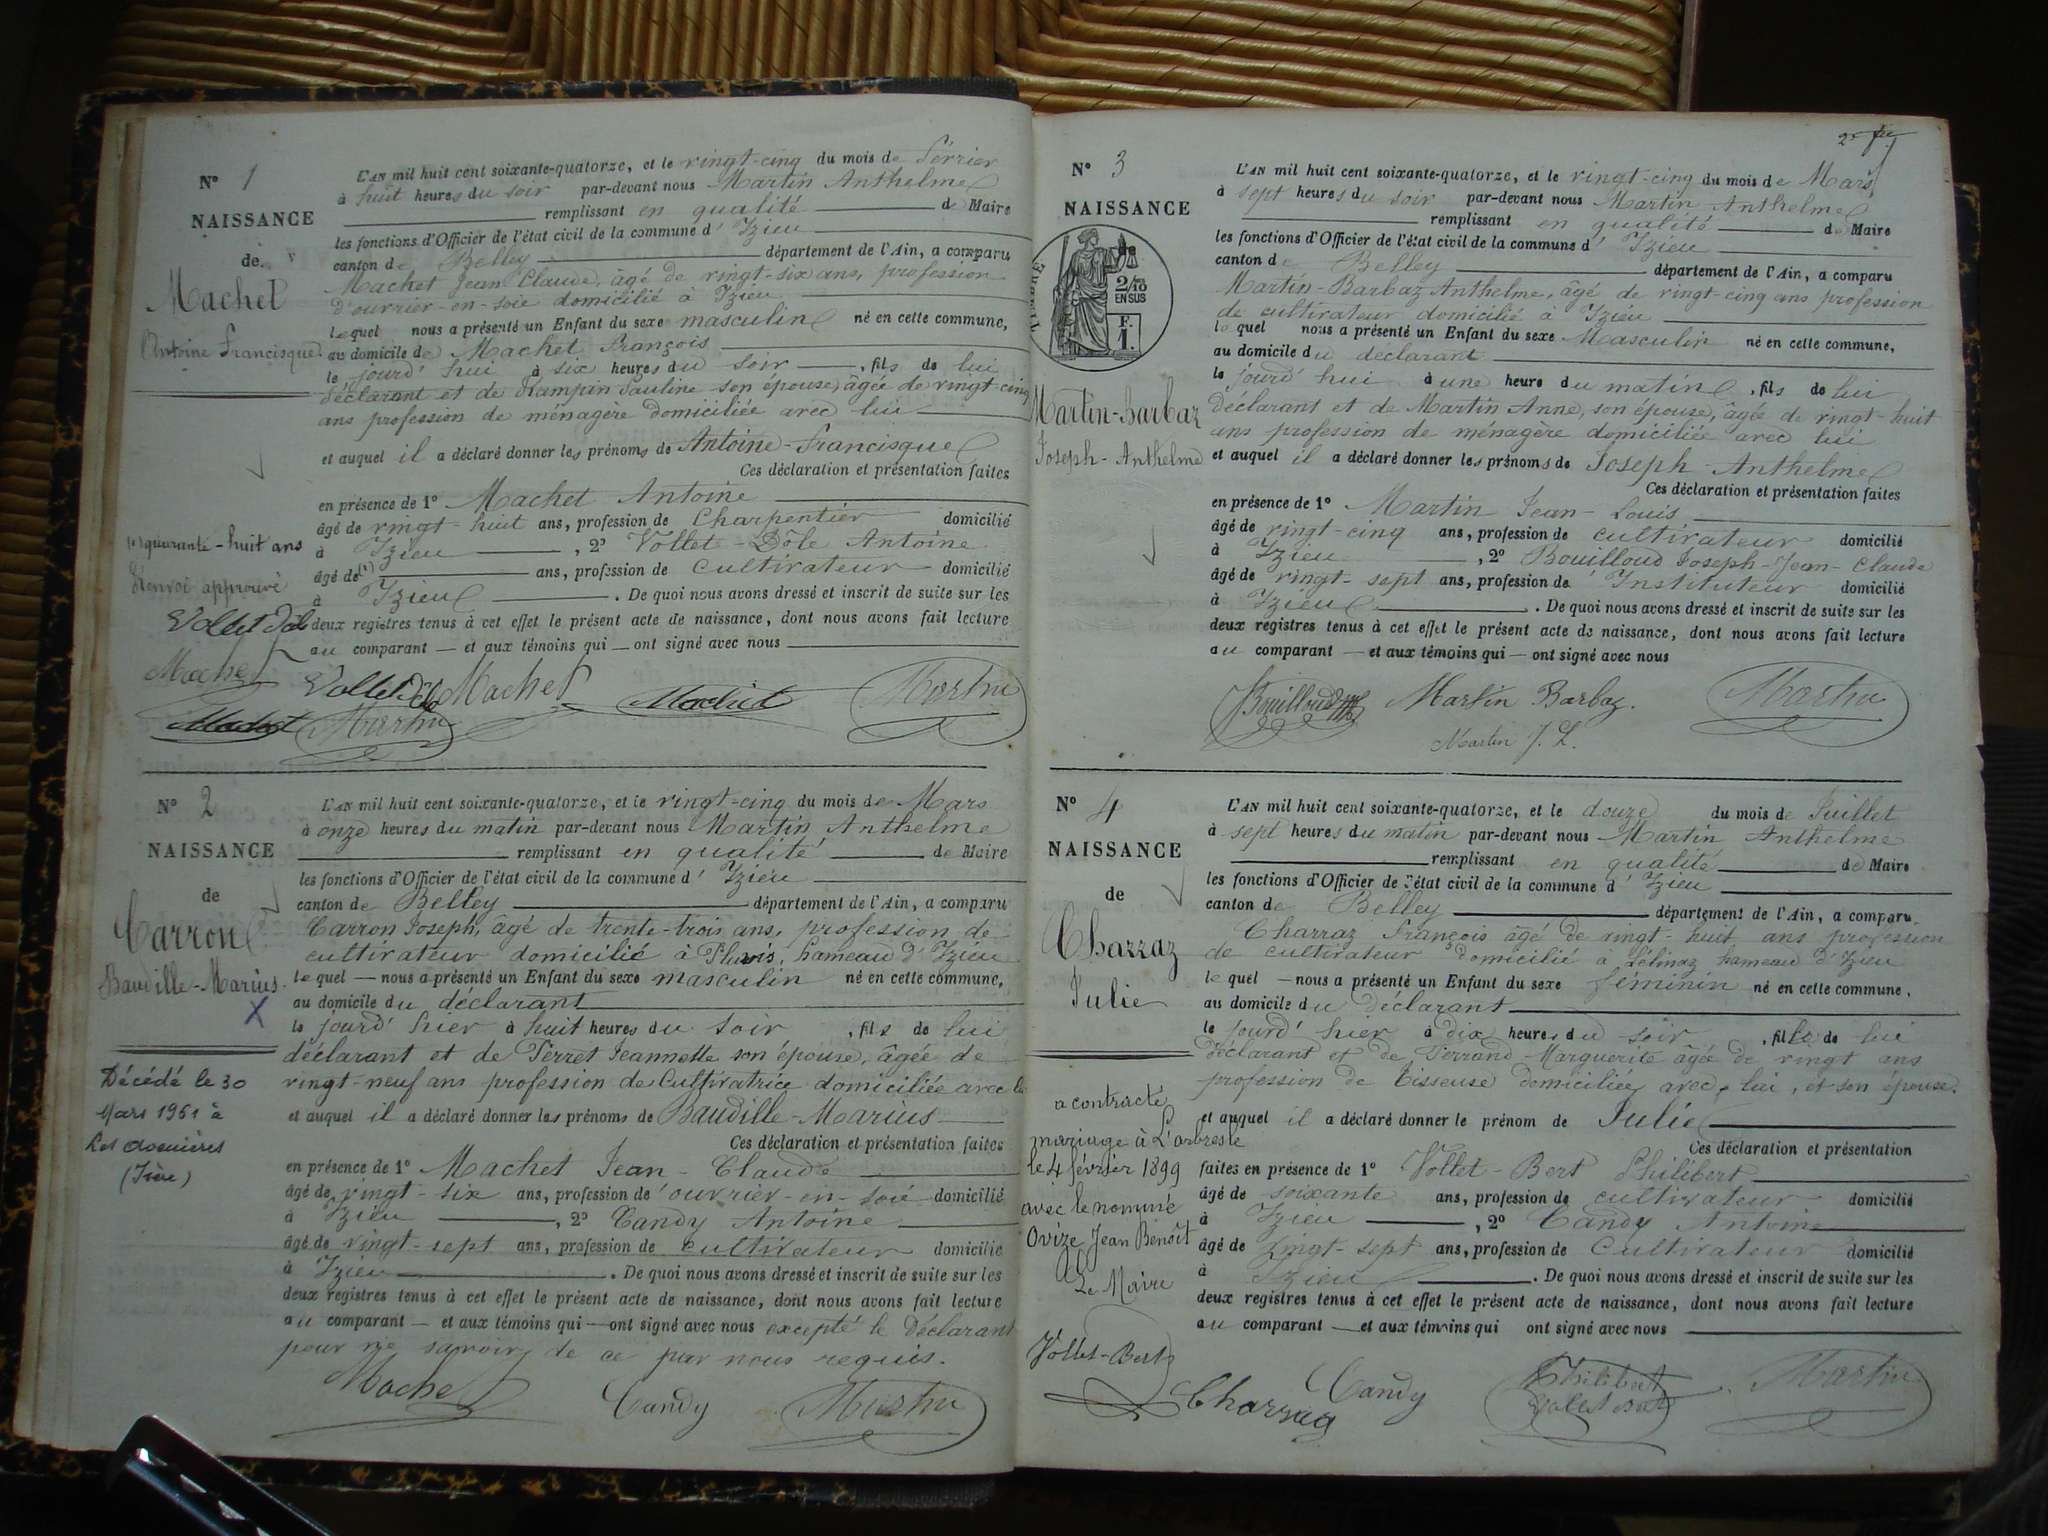 N° 1
NAISSANCE
de
Machet
Antoine Francisque
(1) quarante-huit ans
Renvoi approuvé
Vollet Dôle
Machet
Machet Martin
L'AN mil huit cent soixante-quatorze, et le vingt-cinq du mois de Février
à huit heures du soir par-devant nous Martin Anthelme
remplissant en qualité de Maire
les fonctions d'Officier de l'état civil de la commune d'Izieu
canton de Belley département de l'Ain, a comparu
Machet Jean Claude, âgé de vingt-six ans, profession
d'ouvrier-en-soie domicilié à Izieu
lequel nous a présenté un Enfant du sexe masculin né en cette commune,
au domicile de Machet François
le jourd'hui à six heures du soir, fils de lui
déclarant et de Rampin Pauline son épouse, âgée de vingt-cinq
ans profession de ménagère domiciliée avec lui
et auquel il a déclaré donner les prénoms de Antoine-Francisque
Ces déclaration et présentation faites
en présence de 1° Machet Antoine
âgé de vingt-huit ans, profession de Charpentier domicilié
à Izieu, 2° Vollet-Dôle Antoine
âgé de (1) ans, profession de cultivateur domicilié
à Izieu. De quoi nous avons dressé et inscrit de suite sur les
deux registres tenus à cet effet le présent acte de naissance, dont nous avons fait lecture
au comparant — et aux témoins qui — ont signé avec nous
Vollet Dôle Machet Machet Martin
N° 2
NAISSANCE
de
Carron
Baudille-Marius
X
Décédé le 30
Mars 1951 à
Les Avenières
(Isère)
L'AN mil huit cent soixante-quatorze, et le vingt-cinq du mois de Mars
à onze heures du matin par-devant nous Martin Anthelme
remplissant en qualité de Maire
les fonctions d'Officier de l'état civil de la commune d'Izieu
canton de Belley département de l'Ain, a comparu
Carron Joseph, âgé de trente-trois ans, profession de
cultivateur domicilié à Pluvis, hameau d'Izieu
lequel — nous a présenté un Enfant du sexe masculin né en cette commune,
au domicile du déclarant
le jourd'hier à huit heures du soir, fils de lui
déclarant et de Perret Jeannette son épouse, âgée de
vingt-neuf ans profession de Cultivatrice domiciliée avec lui
et auquel il a déclaré donner les prénoms de Baudille-Marius
Ces déclaration et présentation faites
en présence de 1° Machet Jean-Claude
âgé de vingt-six ans, profession d'ouvrier-en-soie domicilié
à Izieu, 2° Candy Antoine
âgé de vingt-sept ans, profession de cultivateur domicilié
à Izieu. De quoi nous avons dressé et inscrit de suite sur les
deux registres tenus à cet effet le présent acte de naissance, dont nous avons fait lecture
au comparant — et aux témoins qui — ont signé avec nous excepté le déclarant
pour ne savoir, de ce par nous requis.
Machet Candy Martin
N° 3
NAISSANCE
TIMBRE
2/10
EN SUS
F.
1.
Martin-Barbaz
Joseph-Anthelme
L'AN mil huit cent soixante-quatorze, et le vingt-cinq du mois de Mars
à sept heures du soir par-devant nous Martin Anthelme
remplissant en qualité de Maire
les fonctions d'Officier de l'état civil de la commune d'Izieu
canton de Belley département de l'Ain, a comparu
Martin-Barbaz Anthelme, âgé de vingt-cinq ans profession
de cultivateur domicilié à Izieu
lequel nous a présenté un Enfant du sexe Masculin né en cette commune,
au domicile du déclarant
le jourd'hui à une heure du matin, fils de lui
déclarant et de Martin Anne, son épouse, âgée de vingt-huit
ans profession de ménagère domiciliée avec lui
et auquel il a déclaré donner les prénoms de Joseph-Anthelme
Ces déclaration et présentation faites
en présence de 1° Martin Jean-Louis
âgé de vingt-cinq ans, profession de cultivateur domicilié
à Izieu, 2° Bouilloud Joseph-Jean-Claude
âgé de vingt-sept ans, profession d'Instituteur domicilié
à Izieu. De quoi nous avons dressé et inscrit de suite sur les
deux registres tenus à cet effet le présent acte de naissance, dont nous avons fait lecture
au comparant — et aux témoins qui — ont signé avec nous
Bouilloud Martin Barbaz. Martin
Martin J. L.
N° 4
NAISSANCE
de
Charraz
Julie
a contracté
mariage à L'arbresle
le 4 février 1899
avec le nommé
Ovize Jean Benoît
Le Maire
Vollet-Bert
L'AN mil huit cent soixante-quatorze, et le douze du mois de Juillet
à sept heures du matin par-devant nous Martin Anthelme
remplissant en qualité de Maire
les fonctions d'Officier de l'état civil de la commune d'Izieu
canton de Belley département de l'Ain, a comparu
Charraz François âgé de vingt-huit ans profession
de cultivateur domicilié à Lélinaz hameau d'Izieu
lequel — nous a présenté un Enfant du sexe féminin né en cette commune,
au domicile du déclarant
le jourd'hier à dix heures du soir, fille de lui
déclarant et de Perrand Marguerite âgée de vingt ans
profession de Tisseuse domiciliée avec lui, et son épouse.
et auquel il a déclaré donner le prénom de Julie
Ces déclaration et présentation
faites en présence de 1° Vollet-Bert Philibert
âgé de soixante ans, profession de cultivateur domicilié
à Izieu, 2° Candy Antoine
âgé de vingt-sept ans, profession de Cultivateur domicilié
à Izieu. De quoi nous avons dressé et inscrit de suite sur les
deux registres tenus à cet effet le présent acte de naissance, dont nous avons fait lecture
au comparant — et aux témoins qui ont signé avec nous
Charraz Candy Philibert Martin
Volet Bert